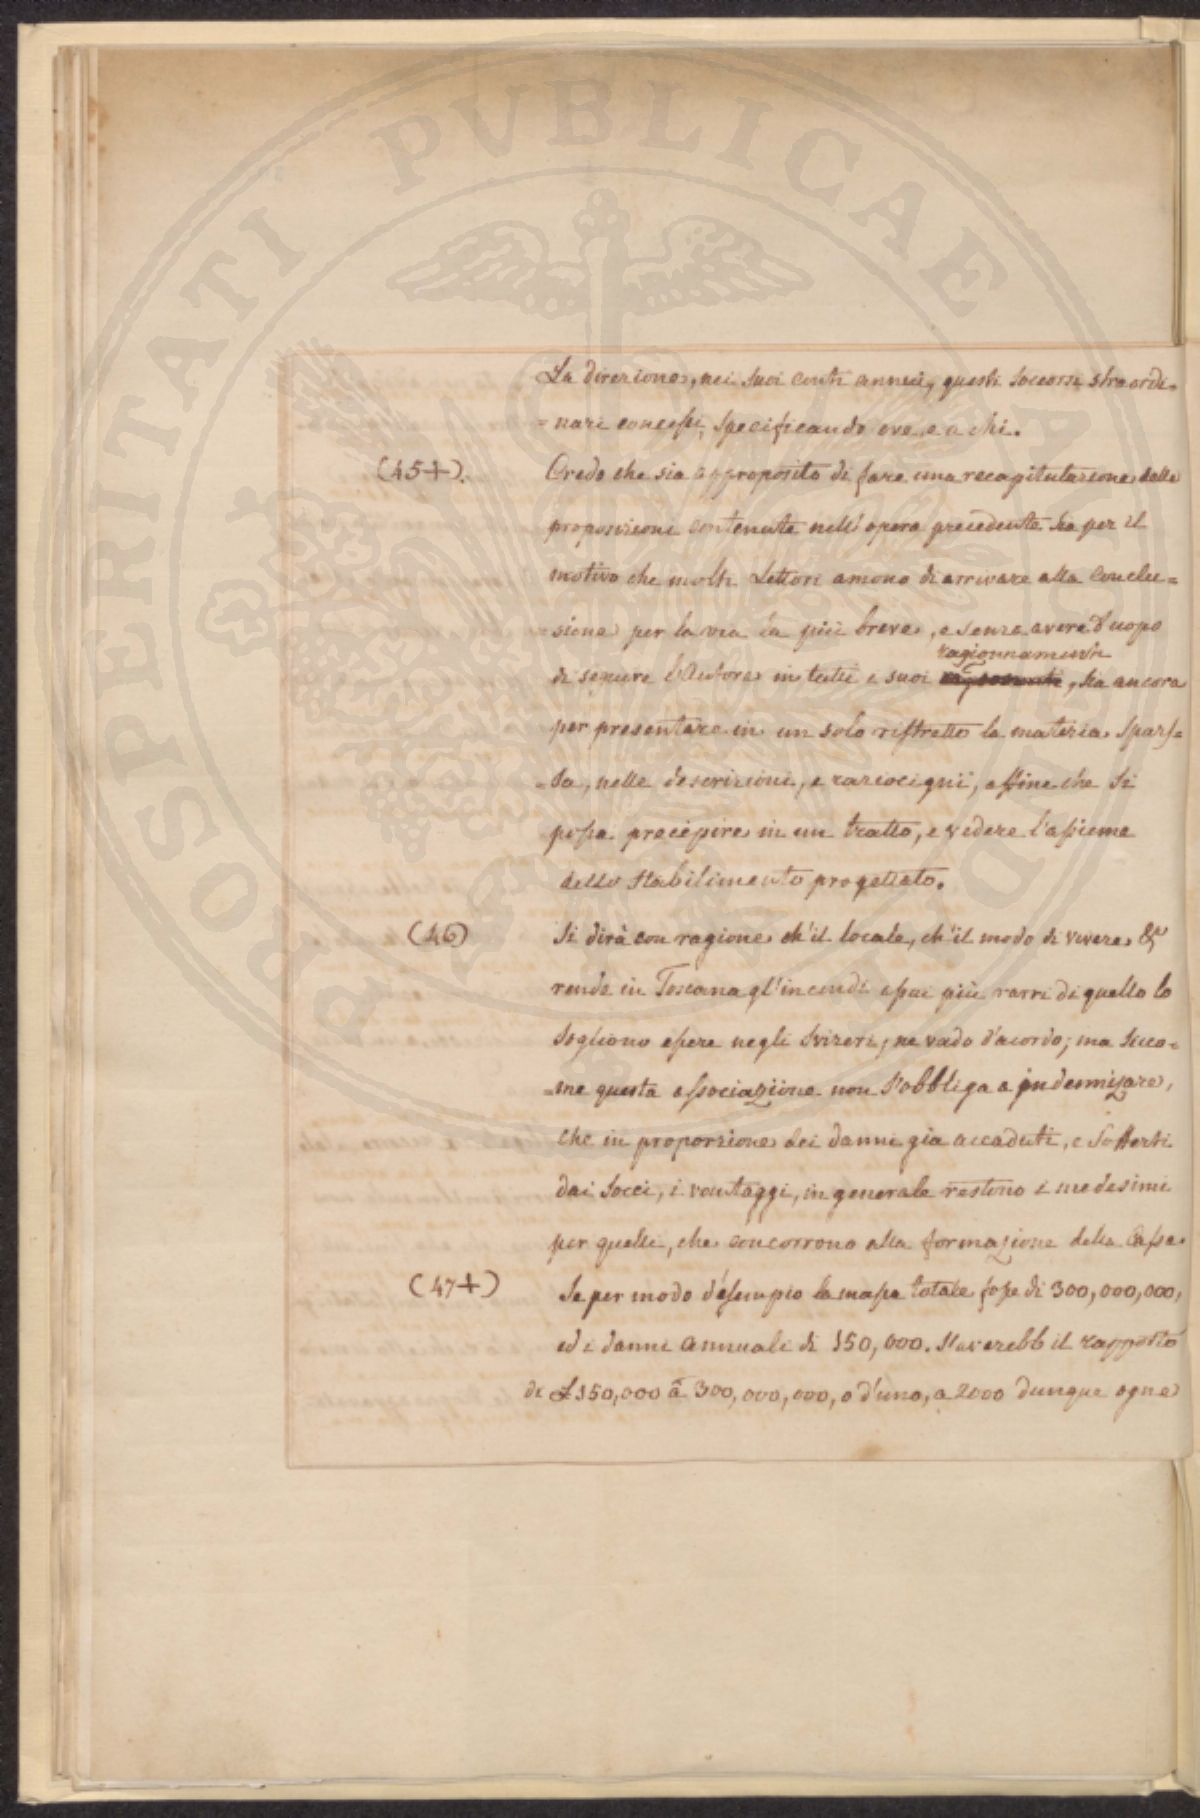 PROSPERITATI PUBLICAE AUGENDAE
La direzione, nei suoi conti annui, questi soccorsi straordi=
=nari concessi, specificando ove, e a chi.
(45+). Credo che sia approposito di fare una recapitulazione delle
proposizioni contenute nell'opera precedente sia per il
motivo che molti Lettori amono di arrivare alla Conclu=
=sione per la via la più breve, e senza avere d'uopo
ragionnamenti
di seguire l'Autore in tutti i suoi , sia ancora
per presentare in un solo ristretto la materia spars=
=sa, nelle descrizioni, e raziocignii, affine che si
possa precepire in un tratto, e vedere l'assieme
dello stabilimento progettato.
(46) Si dirà con ragione ch'il locale, ch'il modo di vivere &ª
rende in Toscana gl'incendi assai più rarri di quello lo
sogliono essere negli Svizeri; ne vado d'acordo; ma sicco=
=me questa associazione non s'obbliga a indennizare,
che in proporzione dei danni gia accaduti, e sofferti
dai Socci, i vantaggi, in generale restono i medesimi
per quelli, che concorrono alla formazione della Cassa.
(47+) Se per modo d'esempio la massa totale fosse di 300,000,000,
ed i danni annuali di 150,000. s'averebb il rapporto
di £150,000 à 300,000,000, o d'uno, a 2000 dunque ogne